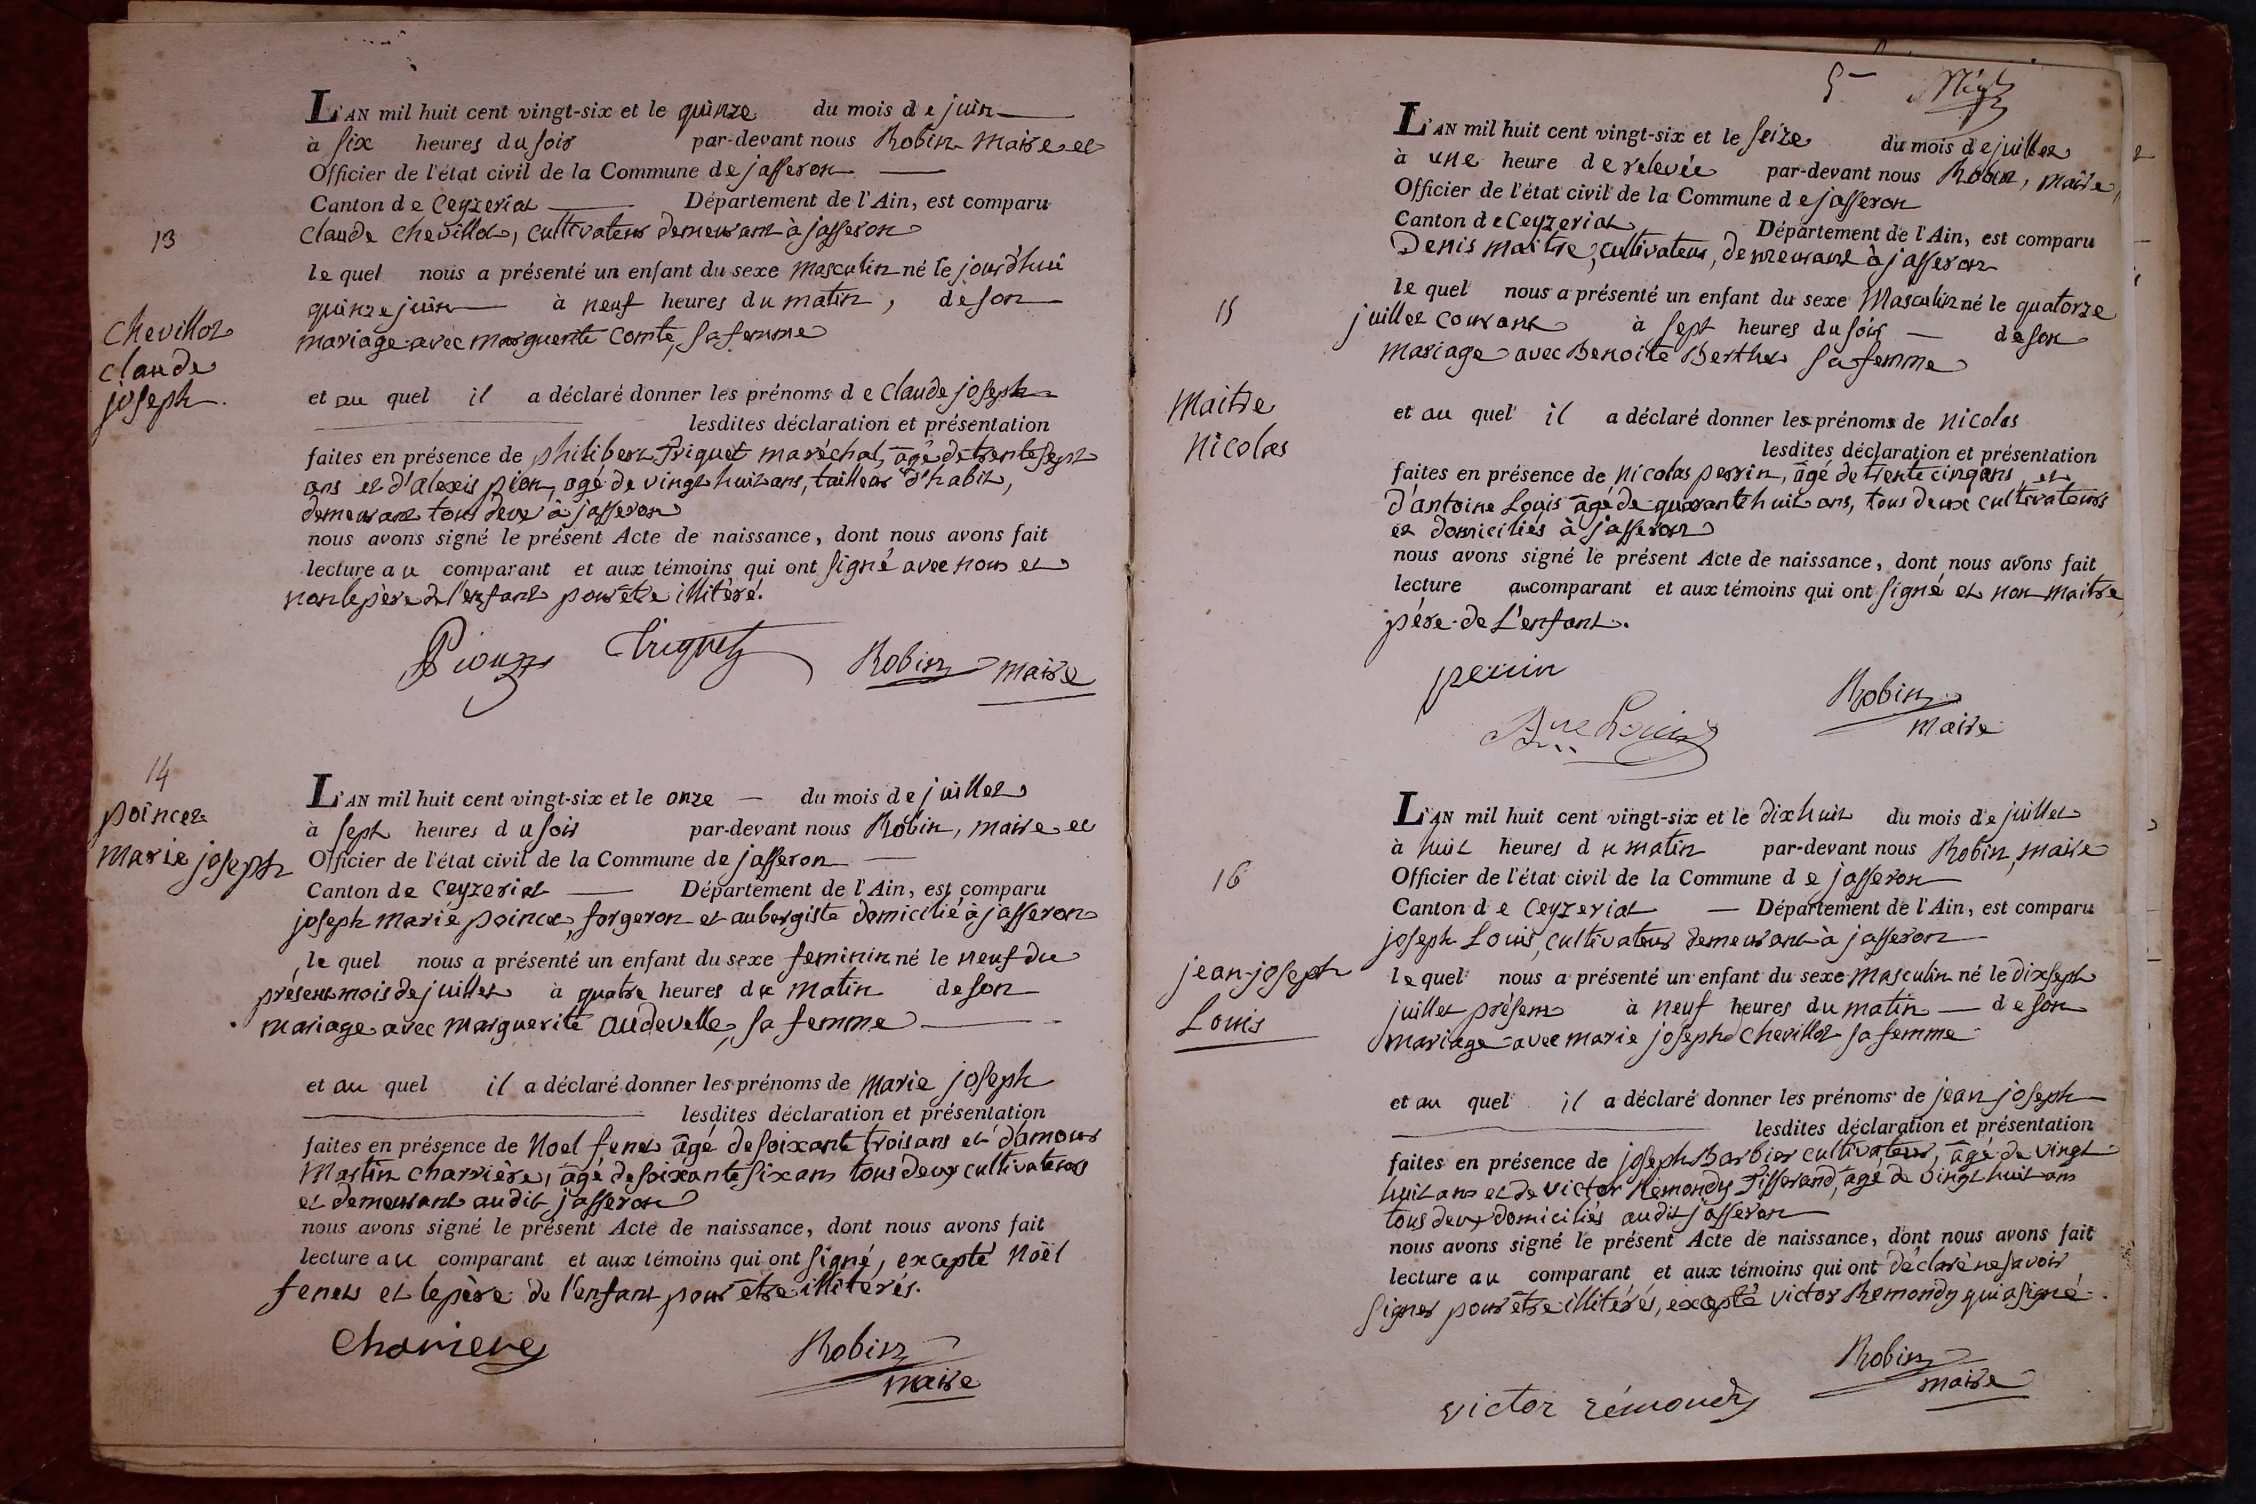 L'AN mil huit cent vingt-six et le quinze du mois de juin
à six heures du soir par-devant nous Robin Maire et
Officier de l'état civil de la Commune de jasseron
Canton de Ceyzeriat Département de l'Ain, est comparu
13
Claude Chevillot, cultivateur demeurant à jasseron
le quel nous a présenté un enfant du sexe masculin né le jourd'hui
quinze juin à neuf heures du matin, de son
Chevillot
claude
joseph.
mariage avec marguerite Comte, sa femme
et au quel il a déclaré donner les prénoms de Claude joseph
lesdites déclaration et présentation
faites en présence de philibert Friquet maréchal, agé de trente sept
ans et d'alexis pion, agé de vingt huit ans, tailleur d'habit,
demeurant tous deux à jasseron
nous avons signé le présent Acte de naissance, dont nous avons fait
lecture au comparant et aux témoins qui ont signé avec nous et
non le père de l'enfant pour être illitéré.
Pion Friquet Robin maire
14
poincet
marie joseph
L'AN mil huit cent vingt-six et le onze du mois de juillet
à sept heures du soir par-devant nous Robin, maire et
Officier de l'état civil de la Commune de jasseron
Canton de Ceyzeriat Département de l'Ain, est comparu
joseph marie poincet, forgeron et aubergiste domicilié à jasseron
le quel nous a présenté un enfant du sexe feminin né le neuf du
présent mois de juillet à quatre heures du matin de son
mariage avec marguerite audevelle, sa femme
et au quel il a déclaré donner les prénoms de marie joseph
lesdites déclaration et présentation
faites en présence de Noel fenet âgé de soixante trois ans et d'amour
Martin charrière, âgé de soixante six ans tous deux cultivateurs
et demeurant audit jasseron
nous avons signé le présent Acte de naissance, dont nous avons fait
lecture au comparant et aux témoins qui ont signé, excepté Noël
fenet et le père de l'enfant pour être illitérés.
Chariere Robin
maire
5
L'AN mil huit cent vingt-six et le seize du mois de juillet
à une heure de relevée par-devant nous Robin, maire,
Officier de l'état civil de la Commune de jasseron
Canton de Ceyzeriat Département de l'Ain, est comparu
Denis maitre, cultivateur, demeurant à jasseron
15
le quel nous a présenté un enfant du sexe Masculin né le quatorze
juillet courant à sept heures du soir de son
mariage avec Benoite Berthet sa femme
Maitre
Nicolas
et au quel il a déclaré donner les prénoms de nicolas
lesdites déclaration et présentation
faites en présence de nicolas perrin, âgé de trente cinq ans, et
d'antoine Louis âgé de quarante huit ans, tous deux cultivateurs
et domiciliés à jasseron
nous avons signé le présent Acte de naissance, dont nous avons fait
lecture au comparant et aux témoins qui ont signé et non maitre
père de l'enfant.
perrin Robin
maire
Louis
L'AN mil huit cent vingt-six et le dix huit du mois de juillet
à huit heures du matin par-devant nous Robin, maire
16
Officier de l'état civil de la Commune de jasseron
Canton de Ceyzeriat Département de l'Ain, est comparu
joseph Louis, cultivateur demeurant à jasseron
jean-joseph
Louis
le quel nous a présenté un enfant du sexe masculin né le dix sept
juillet présent à neuf heures du matin de son
mariage avec marie josephe Chevillot sa femme
et au quel il a déclaré donner les prénoms de jean joseph
lesdites déclaration et présentation
faites en présence de joseph Barbier cultivateur, âgé de vingt
huit ans et de victor Rémondy Tisserand, âgé de vingt huit ans
tous deux domiciliés audit jasseron
nous avons signé le présent Acte de naissance, dont nous avons fait
lecture au comparant et aux témoins qui ont déclaré ne savoir
signer pour être illitérés, excepté victor Remondy qui a signé.
victor rémondy Robin
maire